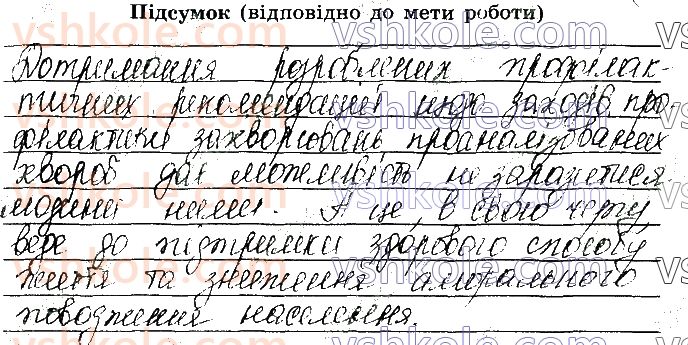 Підсумок (відповідно до мети роботи)
Дотримання розроблених профілак-
тичних рекомендацій щодо заходів про-
філактики захворювань проаналізованих
хвороб дає можливість не заразитися
людині ними. А це, в свою чергу
веде до підтримки здорового способу
життя та зниження аморального
поводження населення.